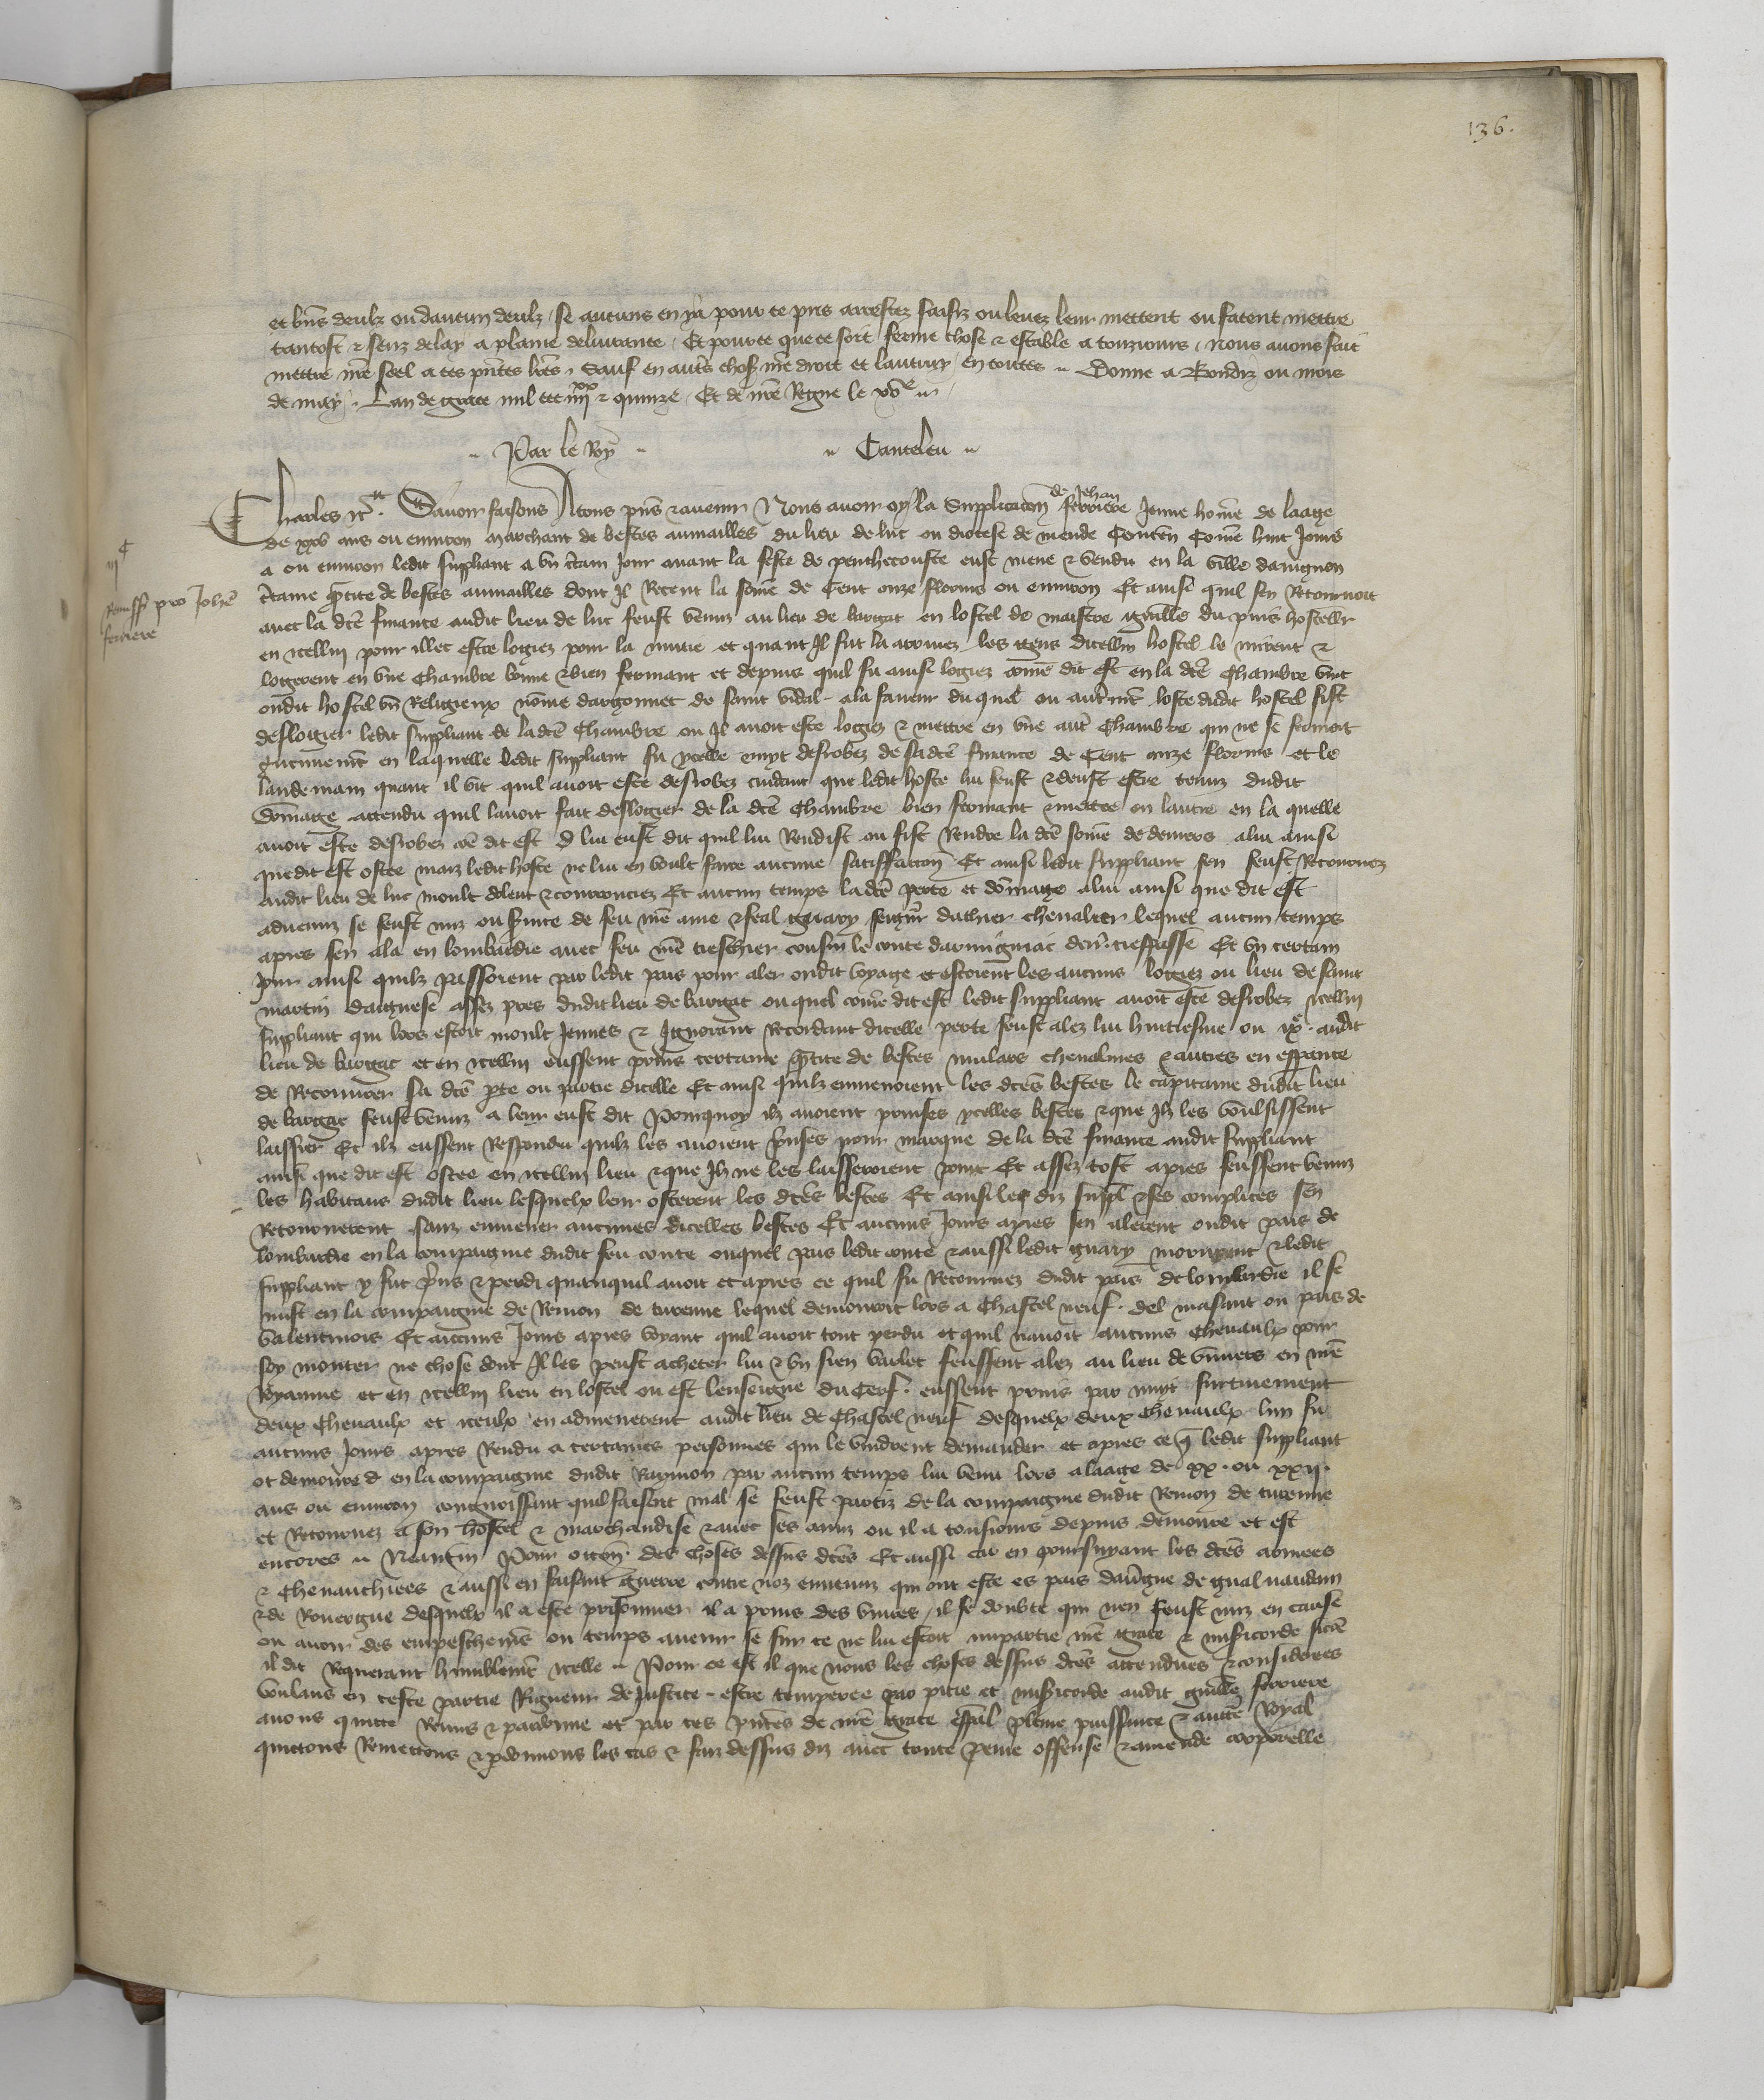 136.
et biens deulx ou daucun deulx se aucuns en y a pour ce pris arrestez saisiz ou levez leur mettent ou facent mettre
tantost & senz delay a plaine delivrance Et pour ce que ce soit ferme chose & estable a touzjours Nous avons fait
mettre nre seel a ces pntes lres Sauf en autres choses nre droit et lautruy en toutes Donne a Bondiz ou mois
de may Lan de grace mil ccc iiii xx & quinze Et de nre Regne le xve
Par le Roy Canteleu
Charles &c. Savoir faisons A tous pns & avenir Nous avoir oy la Supplicacion de Jehan ferriere Jeune home de laage
de xxv ans ou environ marchant de bestes aumailles du lieu de luc ou diocese de mende Conten Come huit Jours
a ou environ ledit suppliant a un ctain Jour avant la feste de penthecouste eust mene & vendu en la ville davignon
ctaine qtite de bestes aumailles dont Il Receut la some de Cent onze florins ou environ Et ainsi quil sen Retournoit
Remiss pro Johe
ferriere
avec la dte finance audit lieu de luc feust venuz au lieu de bargac en lostel de maistre guille du puis hostellr
en icellui pour illec estre logiez pour la nuitie et quant Il fut la arrivez les gens dicellui hostel le mirent &
logerent en une Chambre bonne & bien fermant et depuis quil fu ainsi logiez come dit est en la dte Chambre vint
ondit hostel un Religieux nome dargonnet de saint vidal a la faveur du quel ou autremt loste dudit hostel fist
deslogier ledit suppliant de ladte Chambre ou Il avoit este logiez & mettre en une autre Chambre qui ne se fermoit
aucunemt en laquelle ledit suppliant fu ycelle nuyt desrobez de sadte finance de Cent onze florins et le
landemain quant il vit quil avoit este desrobez cuidant que ledit hoste lui feust & deust estre tenuz dudit
domage attendu quil lavoit fait deslogier de la dte Chambre bien fermant & mettre en lautre en la quelle
avoit este desrobez coe dit est Il lui eust dit quil lui Rendist ou fist Rendre la dte some de deniers a lui ainsi
que dit est ostee maiz ledit hoste ne lui en voult faire aucune satiffacion Et ainsi ledit suppliant sen feust Retournez
audit lieu de luc moult dolent & courrouciez Et aucun temps la dte perte et domage a lui ainsi que dit est
advenuz se feust mis ou service de feu nre ame & feal guary seignr dachier chevalier lequel aucun temps
apres sen ala en lombardie avec feu nre treschier cousin le conte darmignac derr. trespasse Et un certain
jour ainsi quilz passoient par ledit pais pour aler ondit voyage et estoient les aucuns logiez ou lieu de saint
martin daignese assez pres dudit lieu de bargac ou quel come dit est ledit suppliant avoit este desrobez icellui
suppliant qui lors estoit moult Jeunes & Ignorant Recordant dicelle perte feust alez lui huitiesme ou ixe. audit
lieu de bargac et en icellui eussent prins certaine qtite de bestes mulars chevalines & autres en espance
de Recouvrer sa dte pte ou partie dicelle Et ainsi quilz enmenoient les dtes bestes le capitaine dudit lieu
de bargac feust venuz a leur eust dit Pourquoy ilz avoient prinses ycelles bestes & que Ilz les voulsissent
laissier Et ilz eussent Respondu quilz les avoient prinses pour marque de la dte finance audit suppliant
ainsi que dit est ostee en icellui lieu & que Ilz ne les laisseroient point Et assez tost apres feussent venuz
les habitans dudit lieu lesquelx leur osterent les dtes bestes Et ainsi les diz suppl & ses complices sen
Retournerent sanz enmener aucunes dicelles bestes Et aucuns Jours apres sen alerent ondit pais de
lombardie en la compaignie dudit feu conte ouquel pais ledit conte & aussi ledit guary moururent & ledit
suppliant y fut prins & perdi quanquil avoit et apres ce quil fu Retournez dudit pais de lombardie il se
mist en la compaignie de Remon de turenne lequel demouroit lors a Chastel neuf del masant ou pais de
Valentinois Et aucuns Jours apres voyant quil avoit tout perdu et quil navoit aucuns Chevaulx pour
soy monter ne chose dont Il les peust acheter lui & un sien varlet feussent alez au lieu de viviers en nre
Royaume et en icellui lieu en lostel ou est lenseigne du Cerf. eussent prins par nuyt furtivement
deux Chevaulx et iceulx en admenerent audit lieu de Chastel neuf desquelx deux chevaulx lun fu
aucuns Jours apres Rendu a certaines personnes qui le vindrent demander et apres ce q ledit suppliant
ot demoure en la compaignie dudit Raymon par aucun temps lui venu lors a laage de xx. ou xxii.
ans ou environ congnoissant quil faisoit mal se feust partiz de la compaignie dudit Remon de turenne
et Retournez a son hostel & marchandise & avec ses amis ou il a tousiours depuis demoure et est
encores Neantm Pour occon des choses dessus dtes Et aussi car en poursuyant les dtes armees
& Chevauchiees & aussi en faisant guerre contre noz ennemiz qui ont este es pais dauvgne de gualvaudan
& de Rouergue desquelx il a este prisonnier il a prins des vivres, il se doubte qui nen feust mis en cause
ou avoir des empeschemes ou temps avenir se sur ce ne lui estoit impartie nre grace & misericorde sicoe
il dit Requerant humblemt icelle Pour ce est il que nous les choses dessus dtes attendues & considerees
Voulans en ceste partie Rigueur de Justice estre temperee par pitie et misericorde audit guille ferriere
avons quitte Remis & pardonne et par ces pntes de nre grace espal plaine puissance & aucte Royal
quittons Remettons & pdonnons les cas & faiz dessus diz avec toute peine offense & amende corporelle